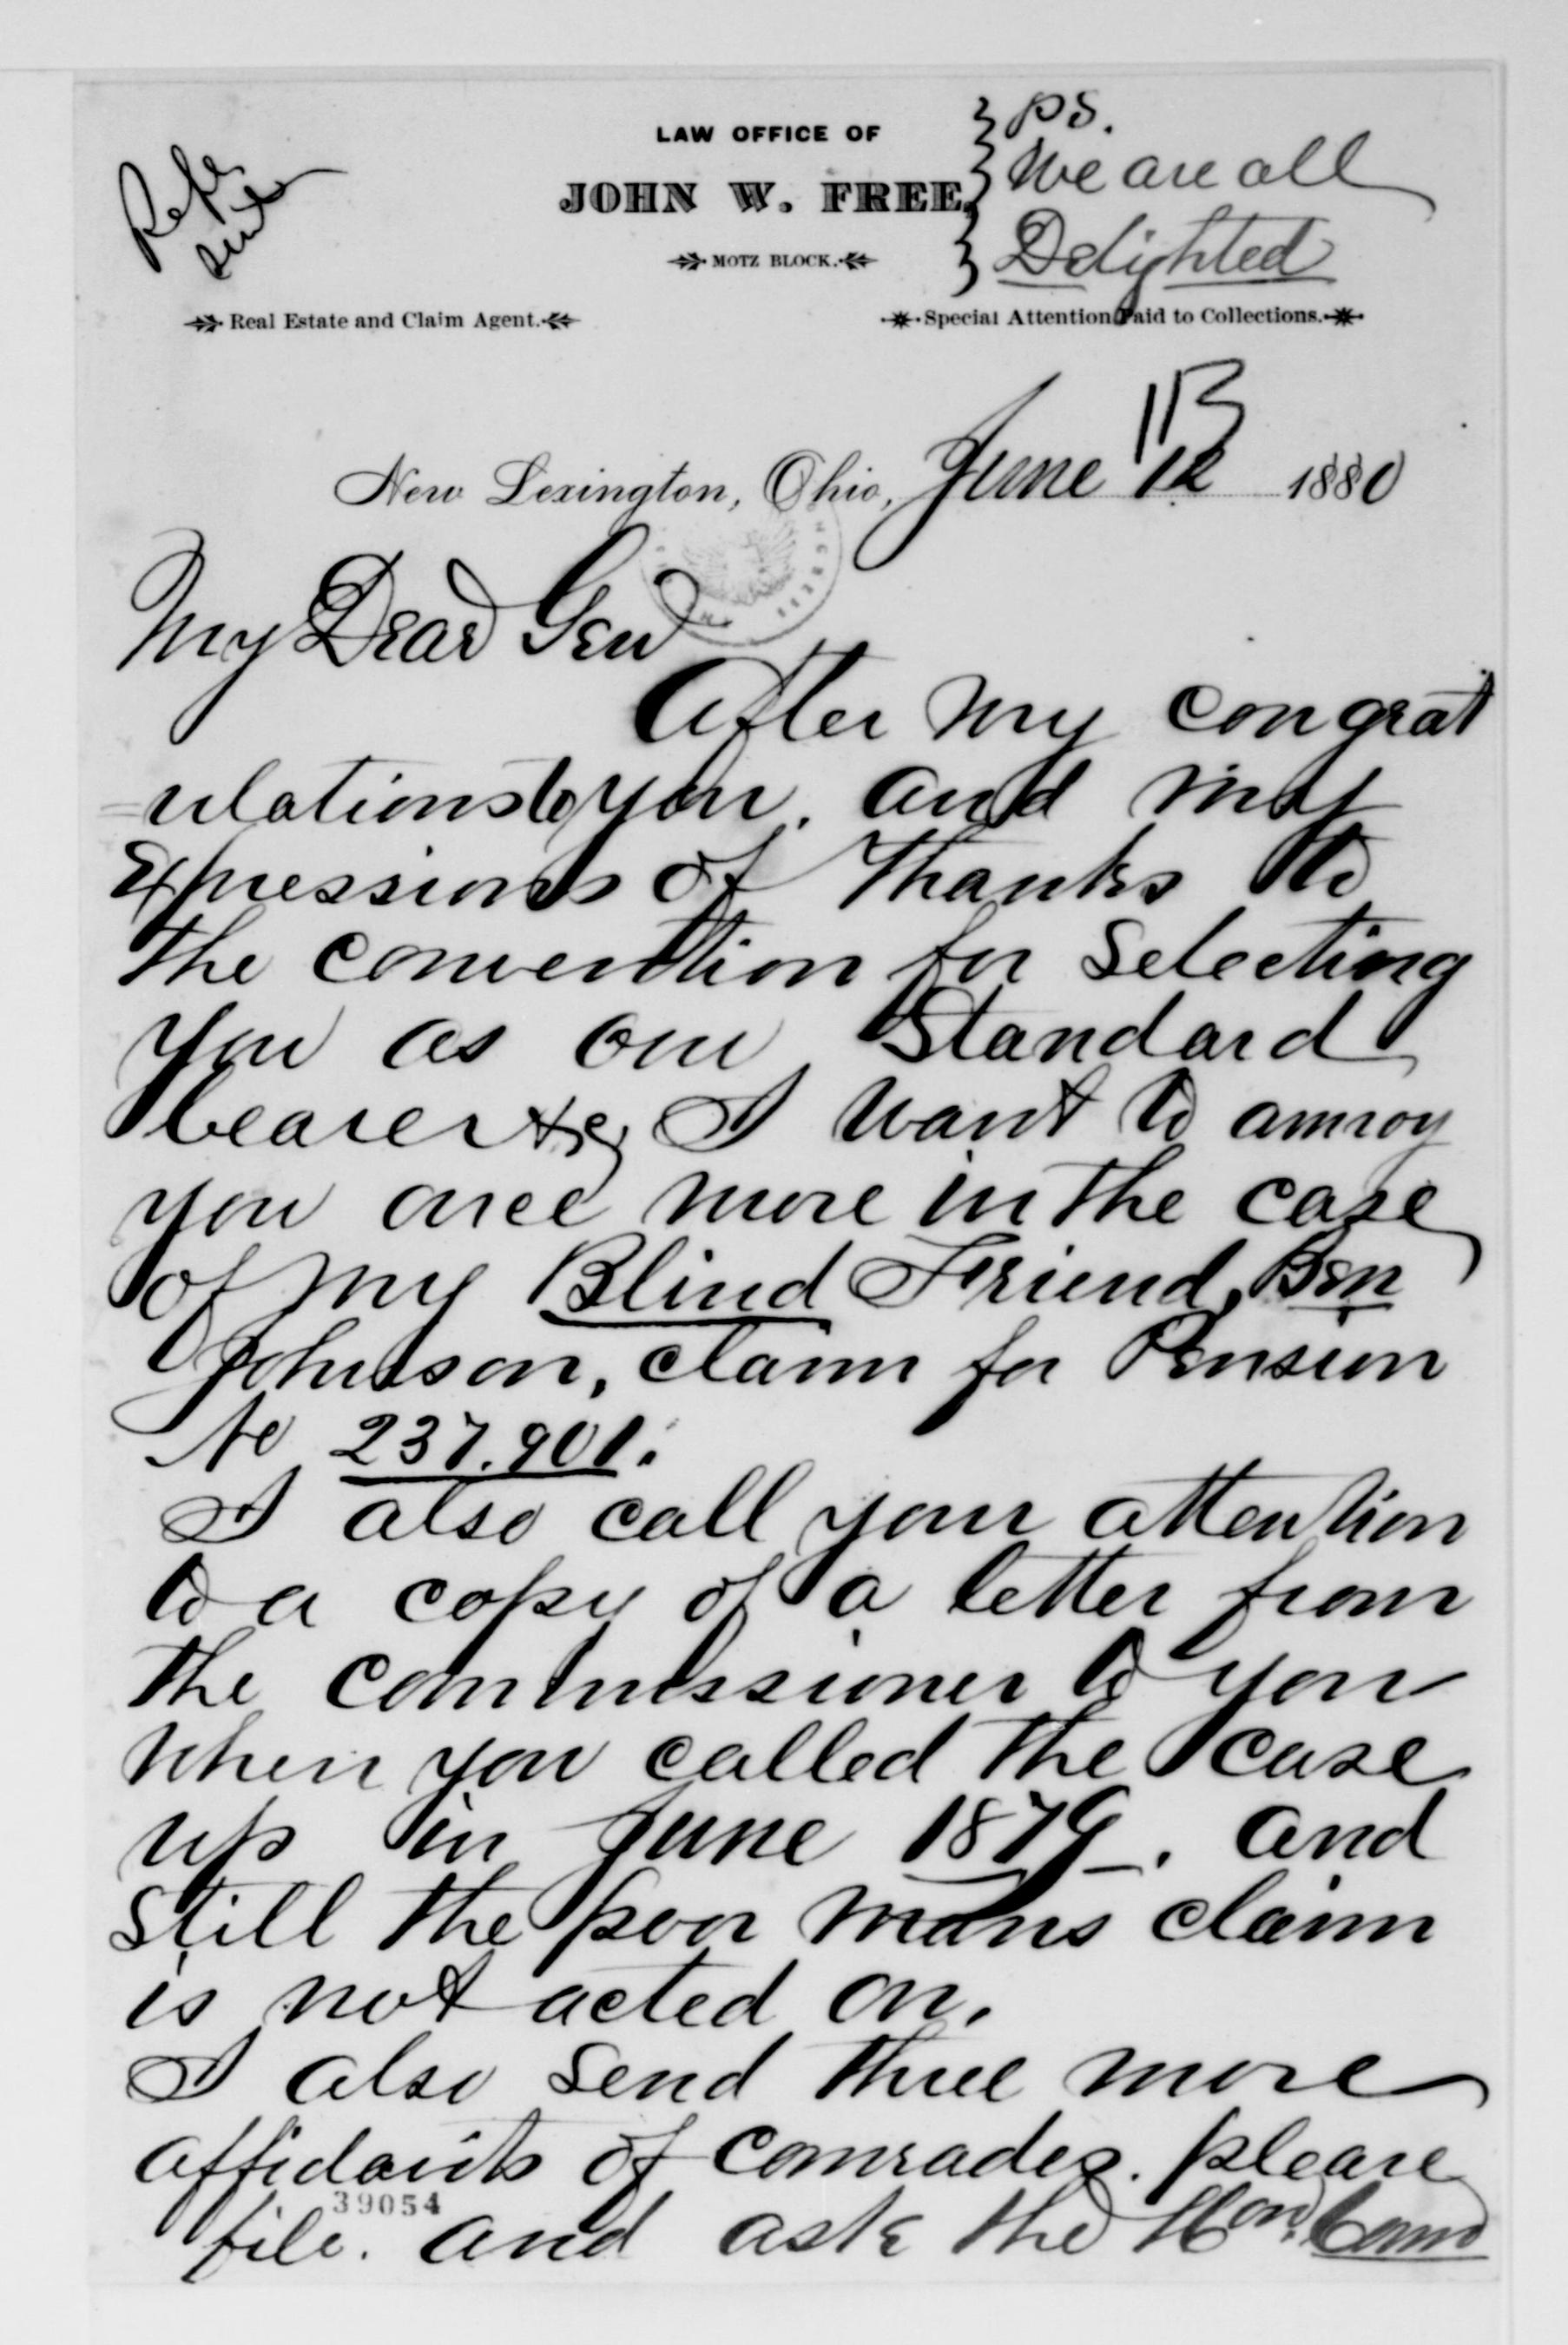 LAW OFFICE OF
JOHN W. FREE,
MOTZ BLOCK.
Real Estate and Claim Agent.
Special Attention Paid to Collections.
PS.
We are all
Delighted
New Lexington, Ohio, June 12 1880
My Dear Gen
After my congrat
ulations to you. and my
Expressions of thanks to
the convention for selecting
you as our Standard
bearer &c, I want to annoy
you once more in the case
of my Blind Friend, Ben
Johnson, claim for Pension
No 237.901.
I also call your attention
to a copy of a letter from
the commissioner to you
when you called the case
up in June 1879. and
still the poor mans claim
is not acted on.
I also send three more
affidavits of comrades. please
file. and ask the Hon. Com
39054